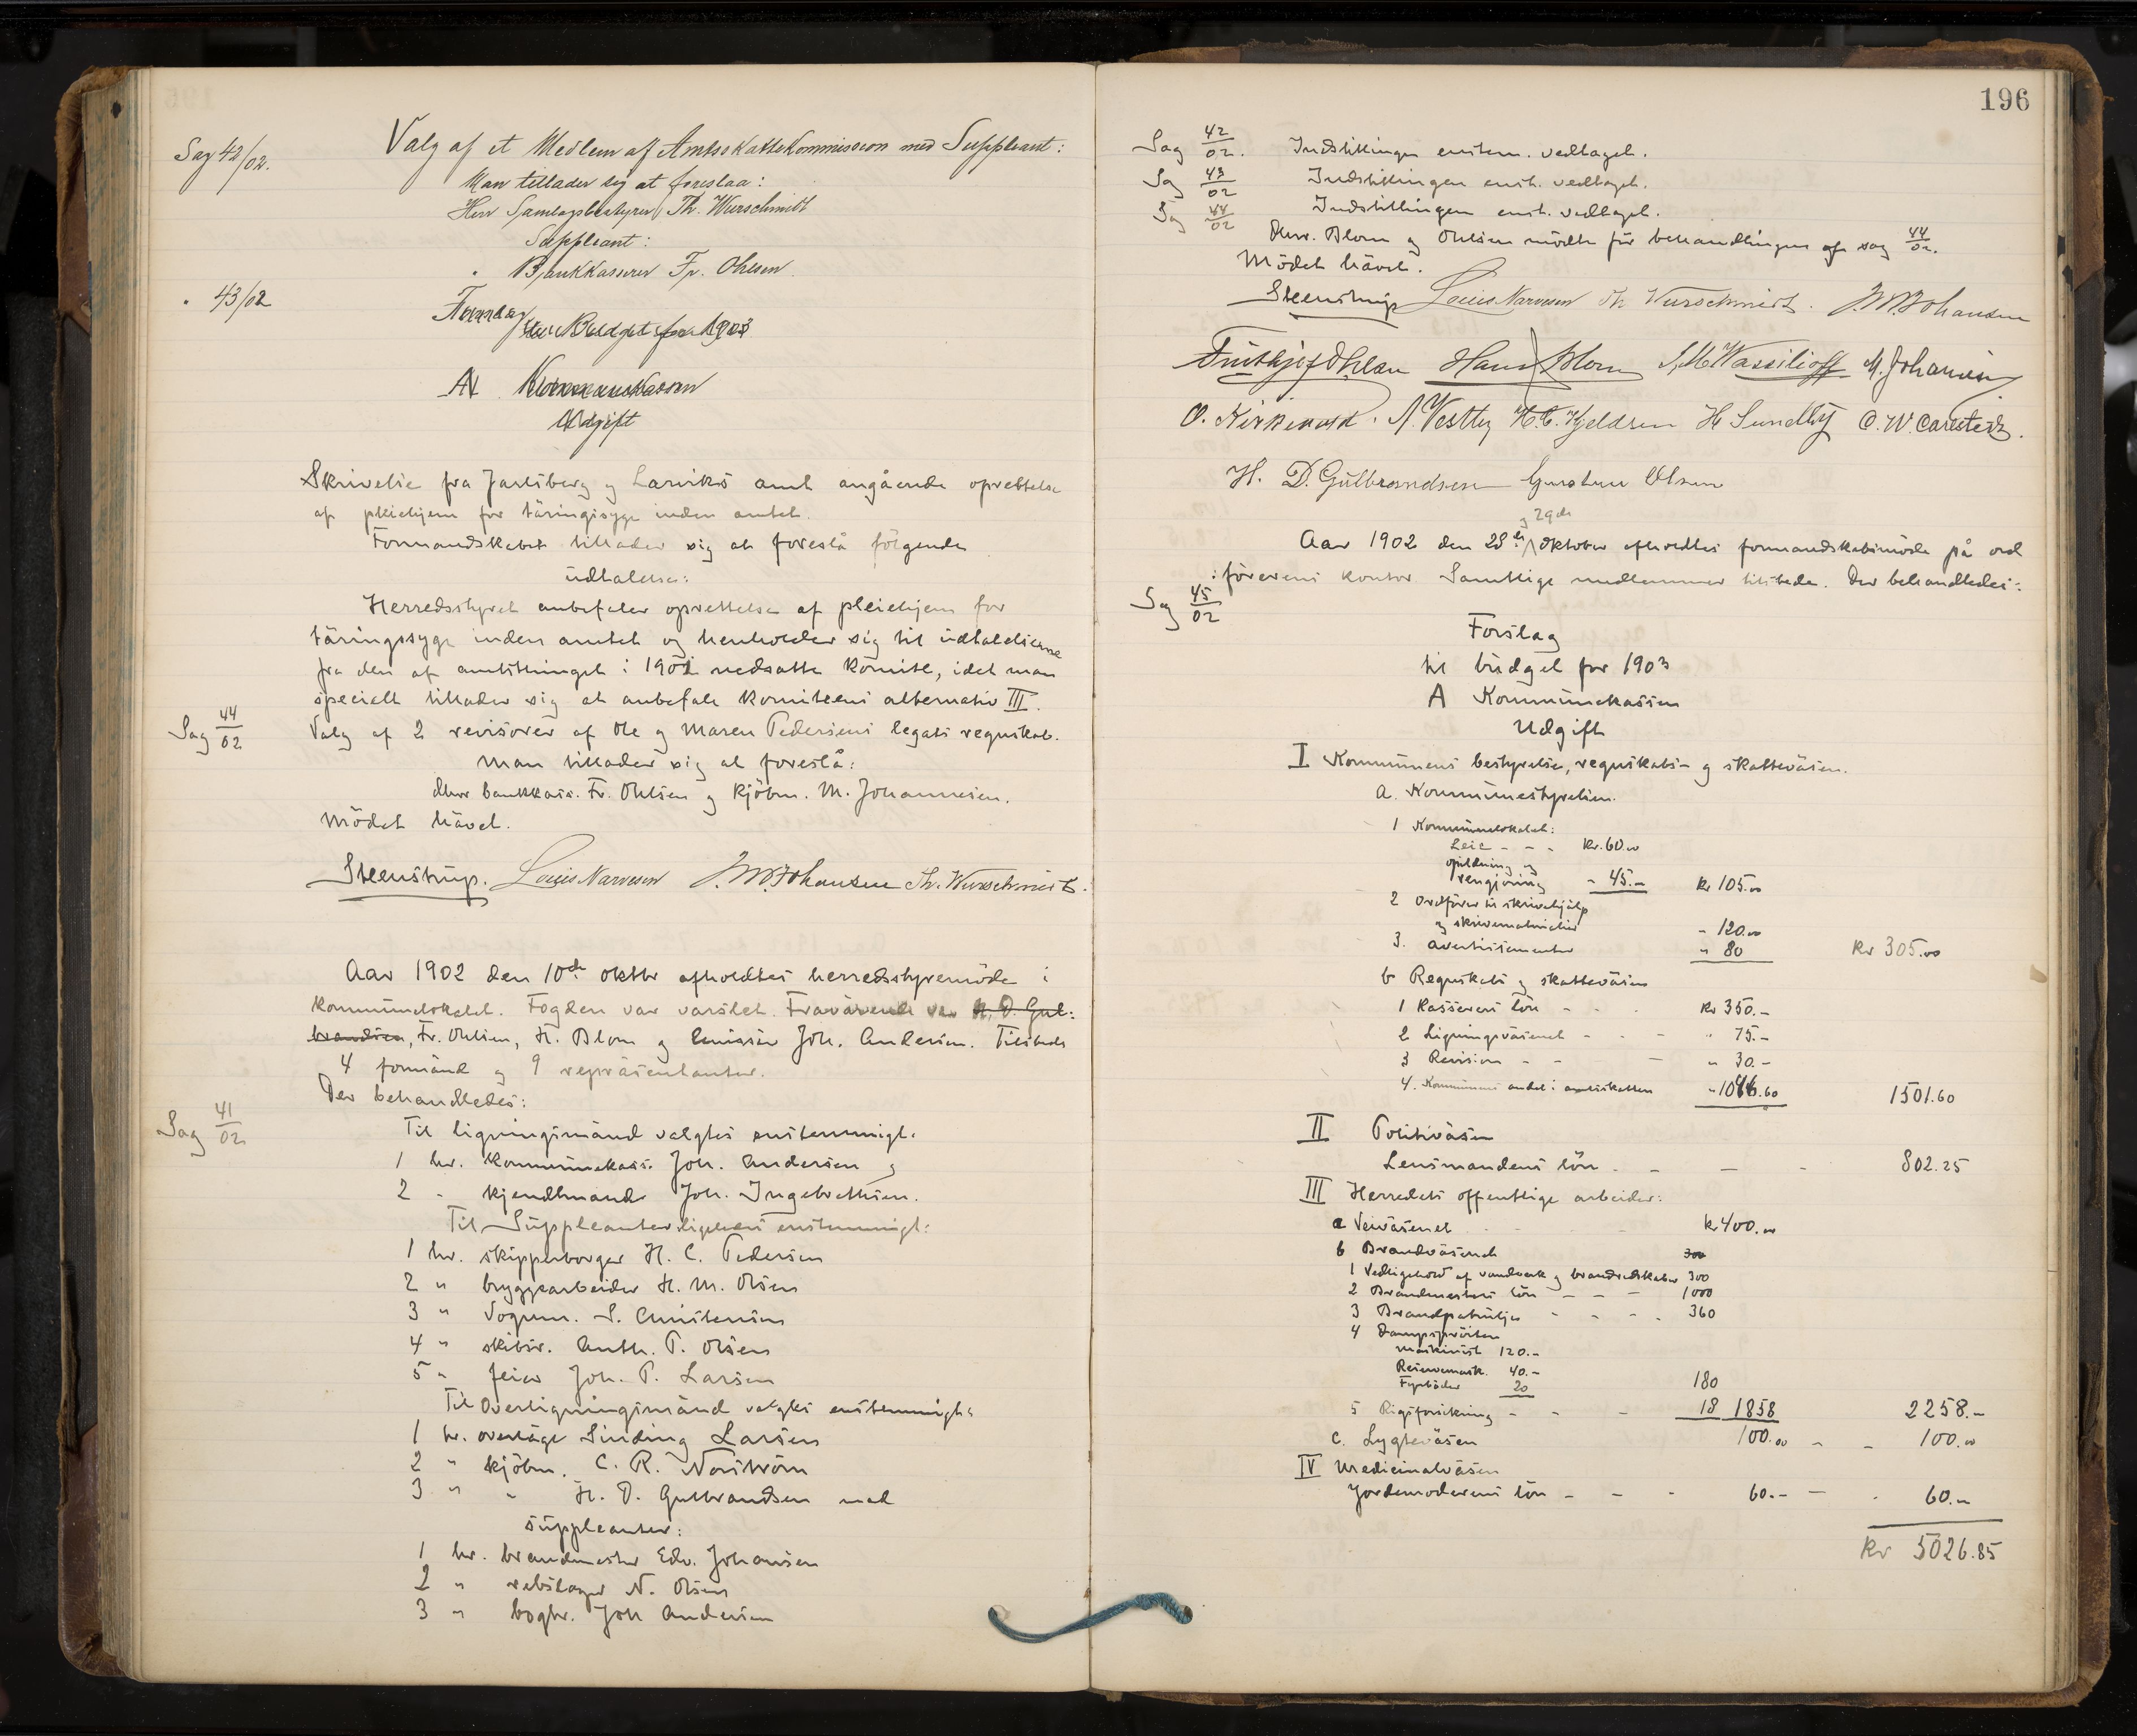 Sag 42/02. Valg af et Medlem af Amtsskattekommission med Suppleant:
Man tillader sig at foreslaa:
Herr Samlagsbestyrer Th. Wurschmidt
Suppleant:
" Bankkasserer Fr. Ohlsen
" 43/02
Forslag
til Budget for 1903
A Kommunekassen
Udgift
Skrivelse fra Jarlsberg og Larviks amt angående oprettelse
af pleiehjem for täringssyge inden amtet.
Formandskabet tillader sig at foreslå fölgende
udtalelse:
Herredsstyret anbefaler oprettelse af pleiehjem for
täringssyge inden amtet og henholder sig til udtalelserne
fra den af amtstinget i 1901 nedsatte komite, idet man
specielt tillader sig at anbefale komiteens alternativ III.
Sag 44/02 Valg af 2 revisorer af Ole og Maren Pedersens legats regnskab.
Man tillader sig at foreslå:
dhrr bankkass. Fr. Ohlsen og kjöbm. M. Johannesen.
Mödet hävet.
Steenstrup. Louis Narvesen J. M. Johansen Th. Wurschmidt.
Aar 1902 den 10de oktbr afholdtes herredsstyremöde i
kommunelokalet. Fogden var varslet. Fraværende var H. D. Gul:
brandsen, Fr. Ohlsen, H. Blom og Joh. Andersen. Tilstede
4 formänd og 9 repräsentanter.
Der behandledes:
Sag 41/02
Til ligningsmänd valgtes enstemmigt:
1 hr. kommunekass. Joh. Andersen og
2 " kjendtmand Joh. Ingebrethsen.
Til Suppleanter ligeledes enstemmigt:
1 hr. skipperborger H. C. Pedersen
2 " bryggearbeider H. M. Olsen
3 " Vognm. S. Christensen
4 " skibsr. Anth. P. Olsen
5 " feier Joh. P. Larsen
Til Overligningsmänd valgtes enstemmigt:
1 hr. overläge Sinding Larsen
2 " kjöbm. C. R. Norström
3 " " H. D. Gulbrandsen med
suppleanter:
1 hr. brandmester Edv. Johansen
2 " rebslager N. Olsen
3 " boghr. Joh Andersen
196
Sag 42/02. Indstillingen enstem. vedtaget.
Sag 43/02 Indstillingen enst. vedtaget.
Sag 44/02 Indstillingen enst. vedtaget.
dhrr. Blom og Ohlsen mödte för behandlingen af sag 44/02.
Mödet hävet.
Steenstrup Louis Narvesen Th Wurschmidt. J. M. Johansen
Frithjof Ohlsen Hans Blom S. M. Wassilioff M. Johannesen
O. Kirkevold. A. Vestby H. C. Kjeldsen H Sundby C. W. Carstens.
H. D. Gulbrandsen Gustav Olsen
og 29de
Aar 1902 den 28de oktober afholdtes formandskabsmöde på ord
:förerens kontor. Samtlige medlemmer tilstede. Der behandledes:
Sag 45/02
Forslag
til budget for 1903
A Kommunekassen
Udgift
I Kommunens bestyrelse, regnskabs- og skatteväsen.
a. Kommunestyrelsen.
1 Kommunelokalet:
Leie - - - kr. 60.00
opildning og
rengjöring - 45.- kr 105.00
2 Ordförer til skrivehjälp
og skrivematerialier - 120.00
3. avertissementer " 80 kr 305.00
b Regnskabs og skatteväsen
1 Kassererens lön - - kr 350.-
2 Ligningsväsenet - - - " 75.-
3 Revision - - - " 30.-
4. Kommunens andel i amtsskatten - 1046.60 1501.60
II Politiväsen
Lensmandens lön - - - - 802.25
III Herredets offentlige arbeider:
a Veiväsenet kr 400.00
b Brandväsenet 300
1 Vedligehold af vandverk og brandredskaber 300
2 Brandmesterens lön - - - 1000
3 Brandpatrulje - - - - 360
4 Dampspröiten
Maskinist 120.-
Reservemask. 40.-
Fyrböder 20 180
5 Rigsforsikring - - - 18 1858 2258.-
c. Lygteväsen 100.00 - - 100.00
IV Medicinalväsen
Jordemoderens lön - - - 60.- - - 60.-
kr 5026.85